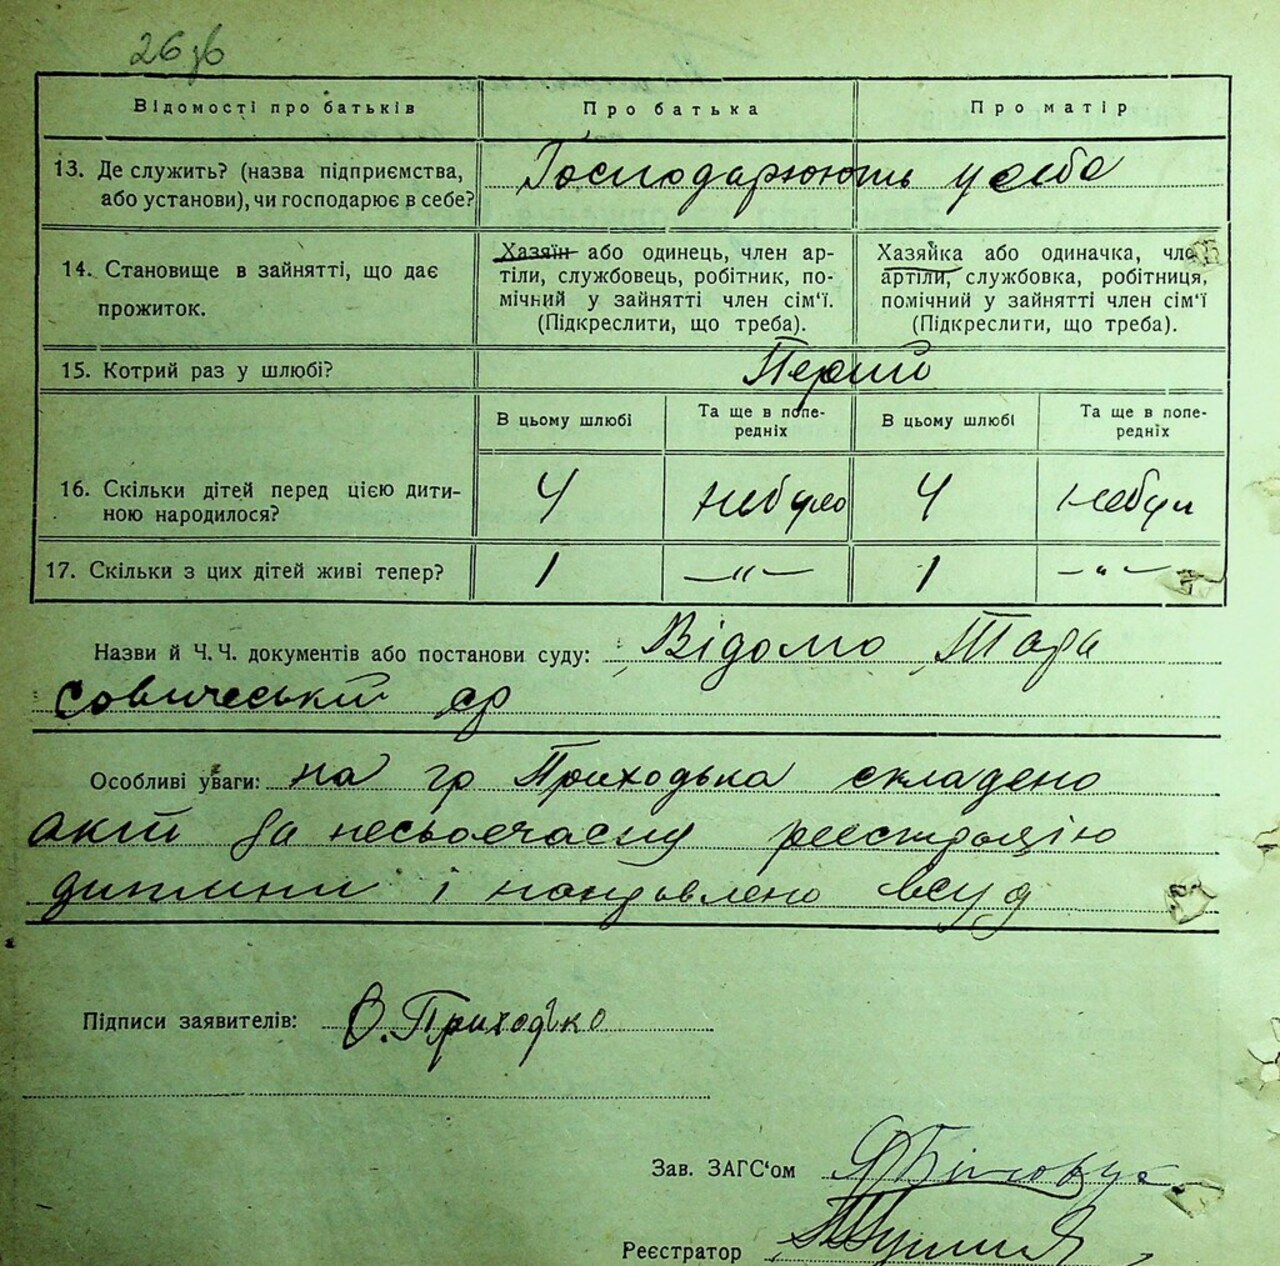 26 зв
Відомості про батьків
Про батька
Про матір
13. Де служить? (назва підприємства, або установи), чи господарює в себе?
Господарюють у себе
14. Становище в зайнятті, що дає прожиток.
Хазяїн або одинець, член ар-
тіли, службовець, робітник, по-
мічний у зайнятті член сім'ї.
(Підкреслити, що треба).
Хазяйка або одиначка, член
артіли, службовка, робітниця,
помічний у зайнятті член сім'ї
(Підкреслити, що треба).
15. Котрий раз у шлюбі?
Перший
В цьому шлюбі
Та ще в попе-
редніх
В цьому шлюбі
Та ще в попе-
редніх
16. Скільки дітей перед цією дити-
ною народилося?
4
небуло
4
небул
17. Скільки з цих дітей живі тепер?
1
—"—
1
—"—
Назви й Ч.Ч. документів або постанови суду: Відомо Тара
совичеській ср
Особливі уваги: на гр Приходька складено
акт за несвоечасну реестрацію
дитини і направлено всуд
Підписи заявителів: О. Приходько
Зав. ЗАГС'ом
Реєстратор